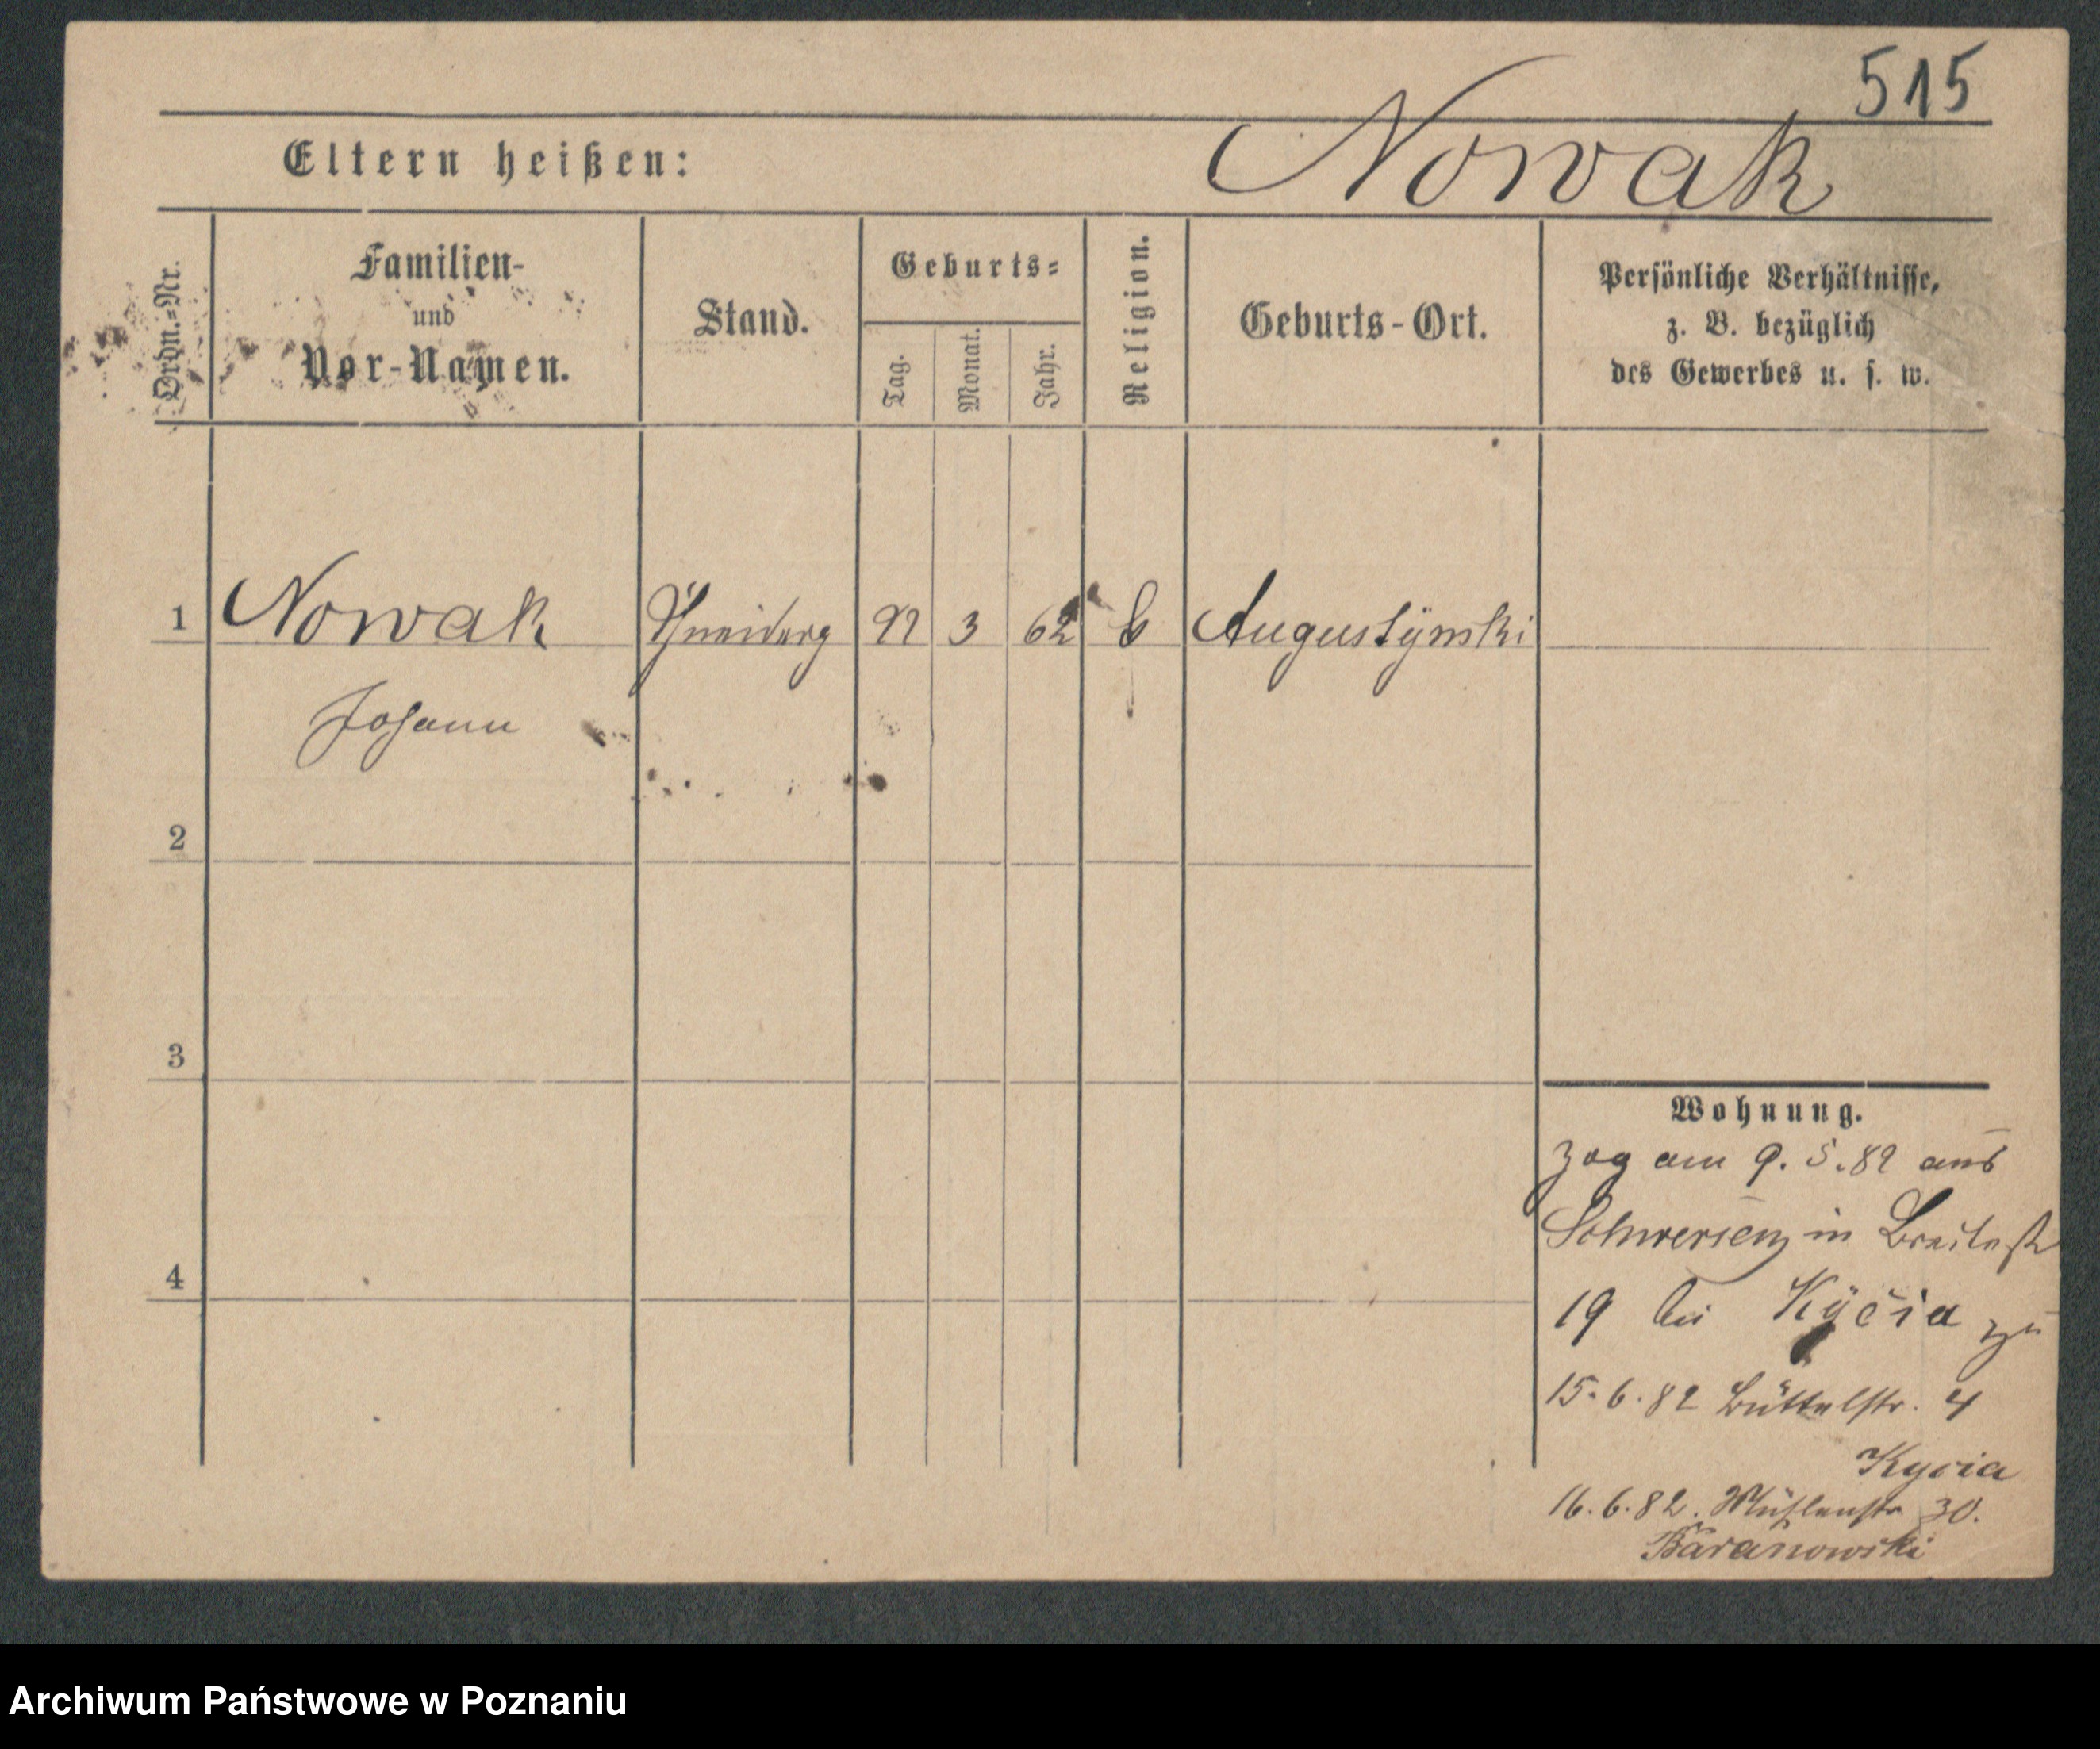 515
Eltern heißen:
Nowak
Ordn.-Nr.
Familien-
und
Vor-Namen.
Stand.
Geburts-
Tag.
Monat.
Jahr.
Religion.
Geburts-Ort.
Persönliche Verhältnisse,
z. B. bezüglich
des Gewerbes u. s. w.
1 Nowak 3 62 Augustÿnski
Johann
2
3
4
Wohnung.
Zog am 9. 5. 82 aus
Schwersenz in Breitestr
19 bei Kÿcia zu
15. 6. 82 Büttelstr. 4
Kycia
16. 6. 82. Mühlenstr 30.
Baranowski
Archiwum Państwowe w Poznaniu